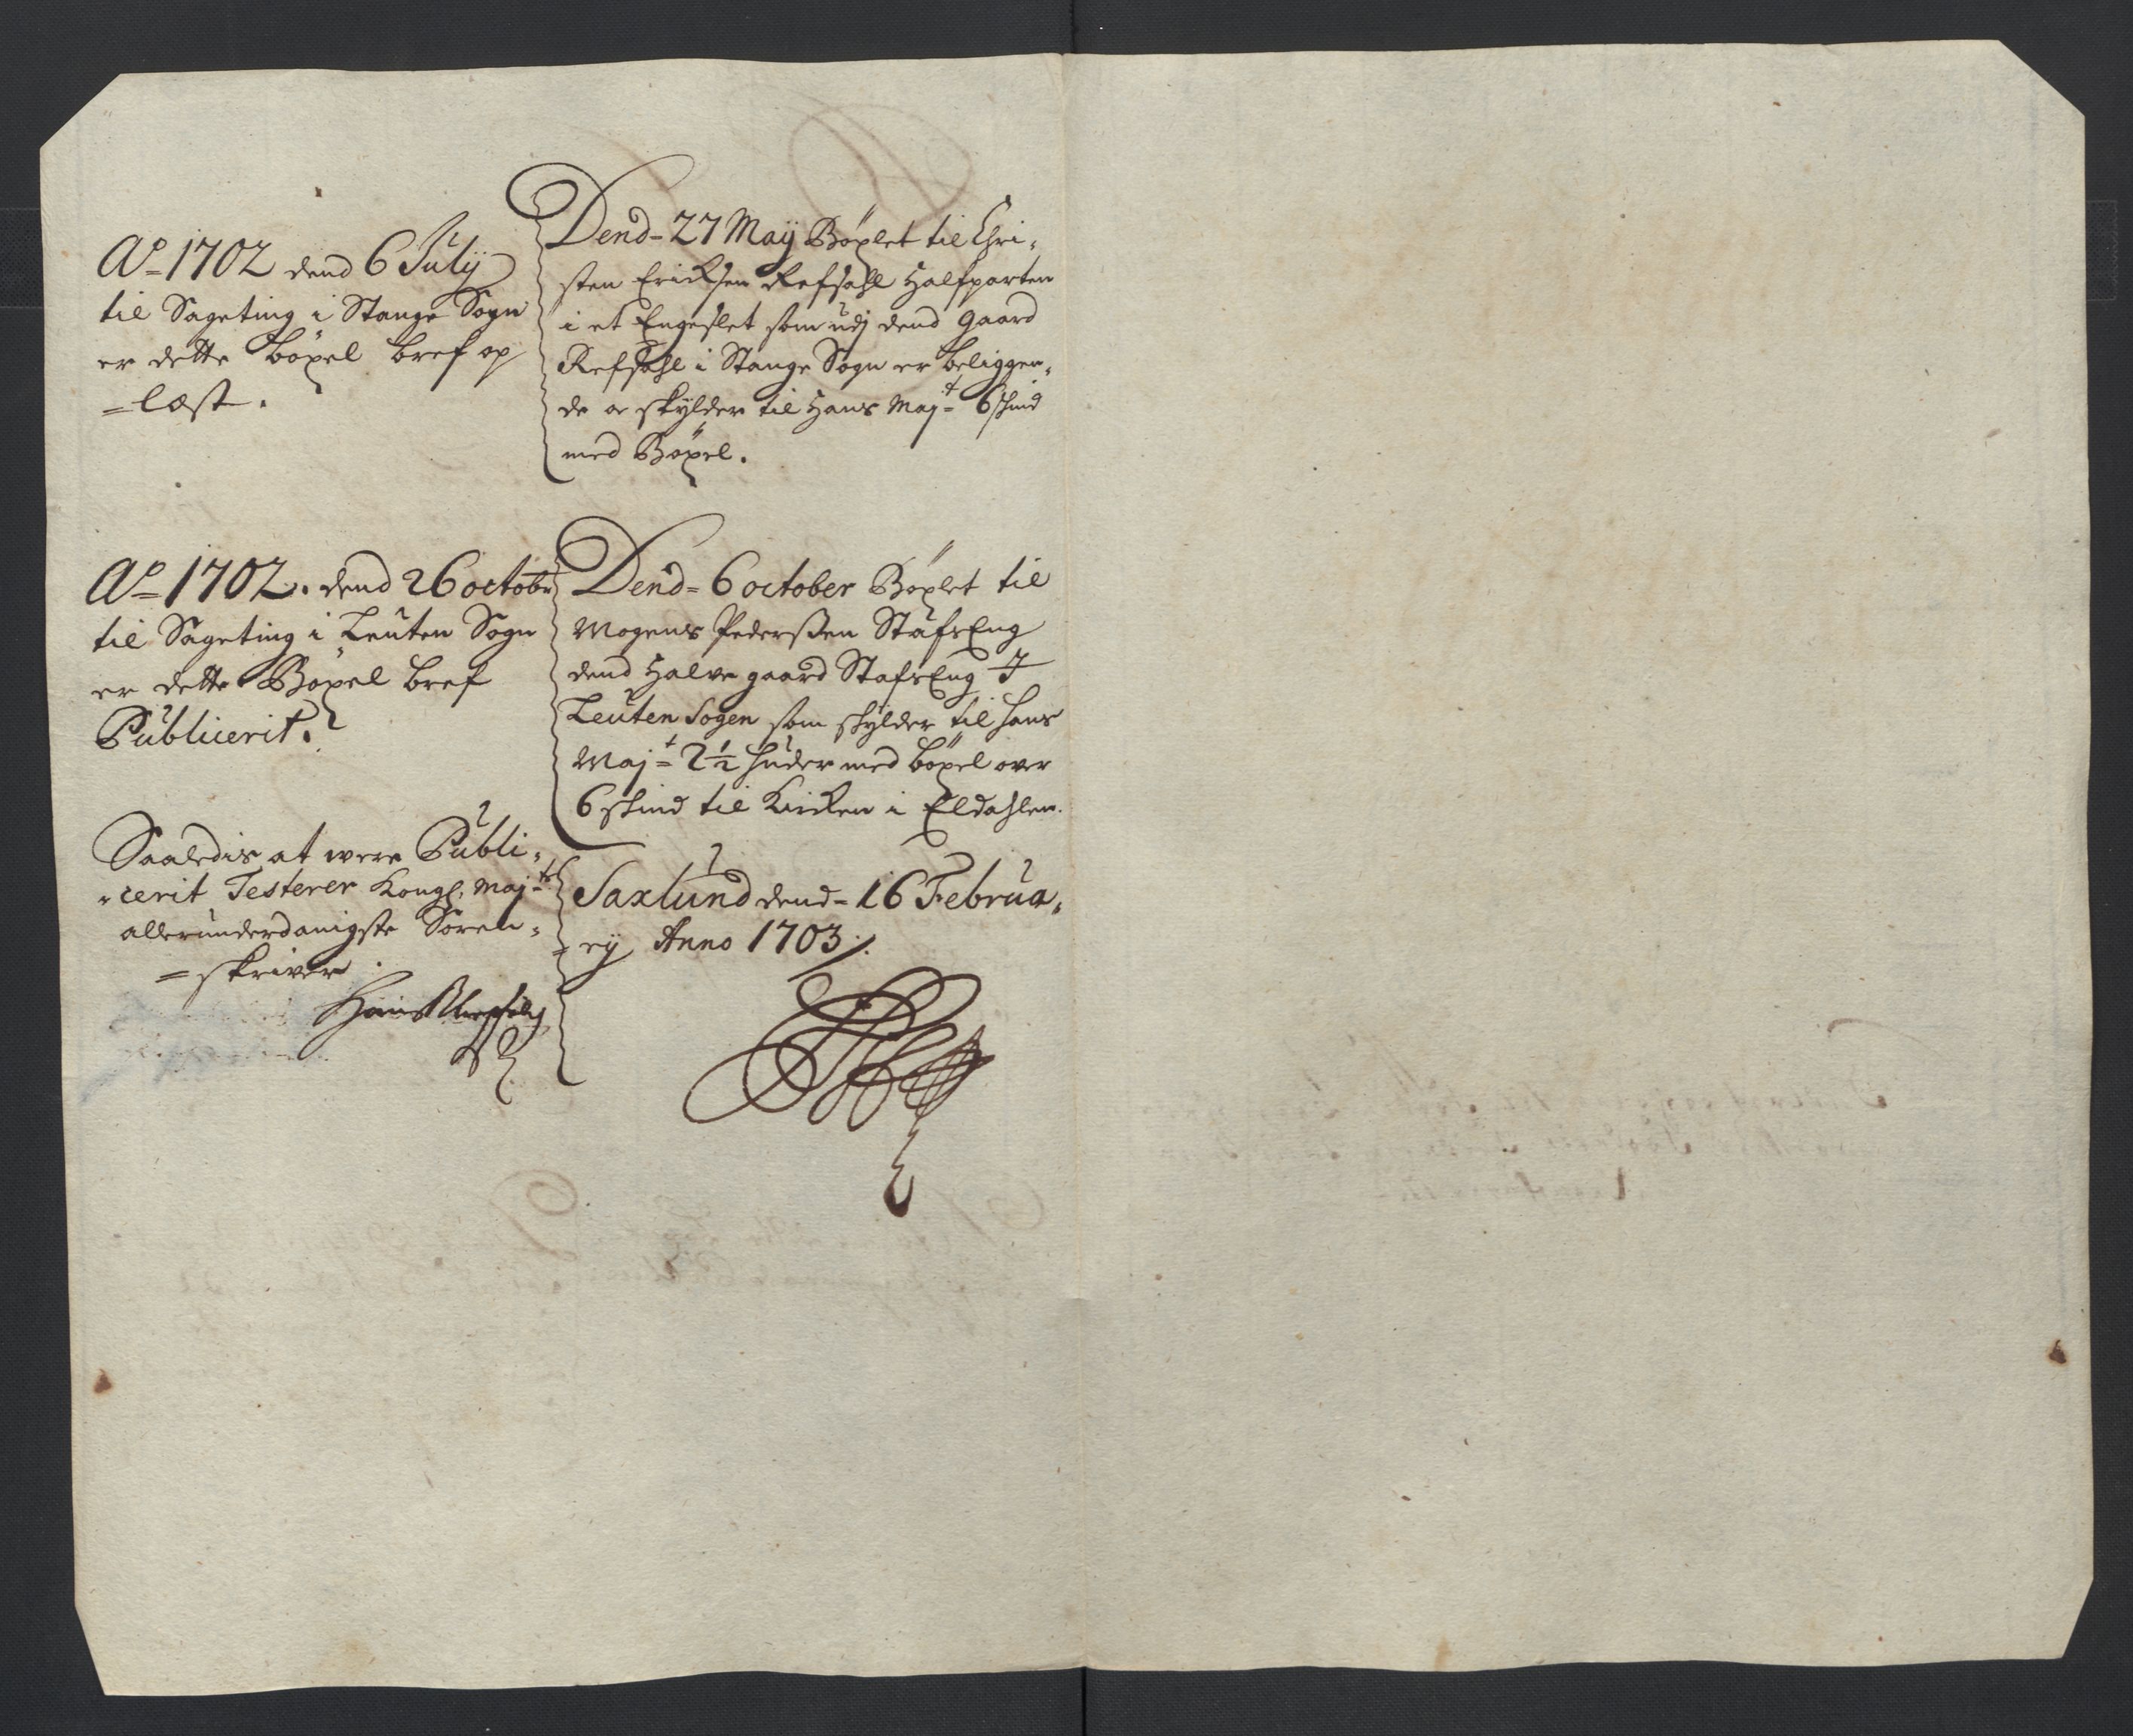 Ao 1702 dend 6 Julij
til Sageting i Stange Sogn
er dette böxel bref op
=læst.
Dend 27 Maij Böxlet til Chri-
sten Ericksen Refsahl Halfparten
i et Engeslet som udj dend gaard
Refsahl i Stange Sogn er beliggen-
de oc skylder til Hans Majt 6 skind
med Böxel.
Ao 1702. dend 26 octobr
til Sageting i Leuten Sogn
er dette Böxel bref
Publicerit.
Dend 6 october Böxlet til
Mogens Pederssen StafsEng
dend Halve gaard StafsEng J
Leuten Sogen som skylder til Hans
Majt 2½ huder med böxel over
6 skind til Kircken i Eldahlen.
Saaledis at were Publi-
cerit Testerer Kongl. Majts
allerunderdanigste Soren-
=skriver.
Hans
Saxlund dend 16 Februa-
rij Anno 1703